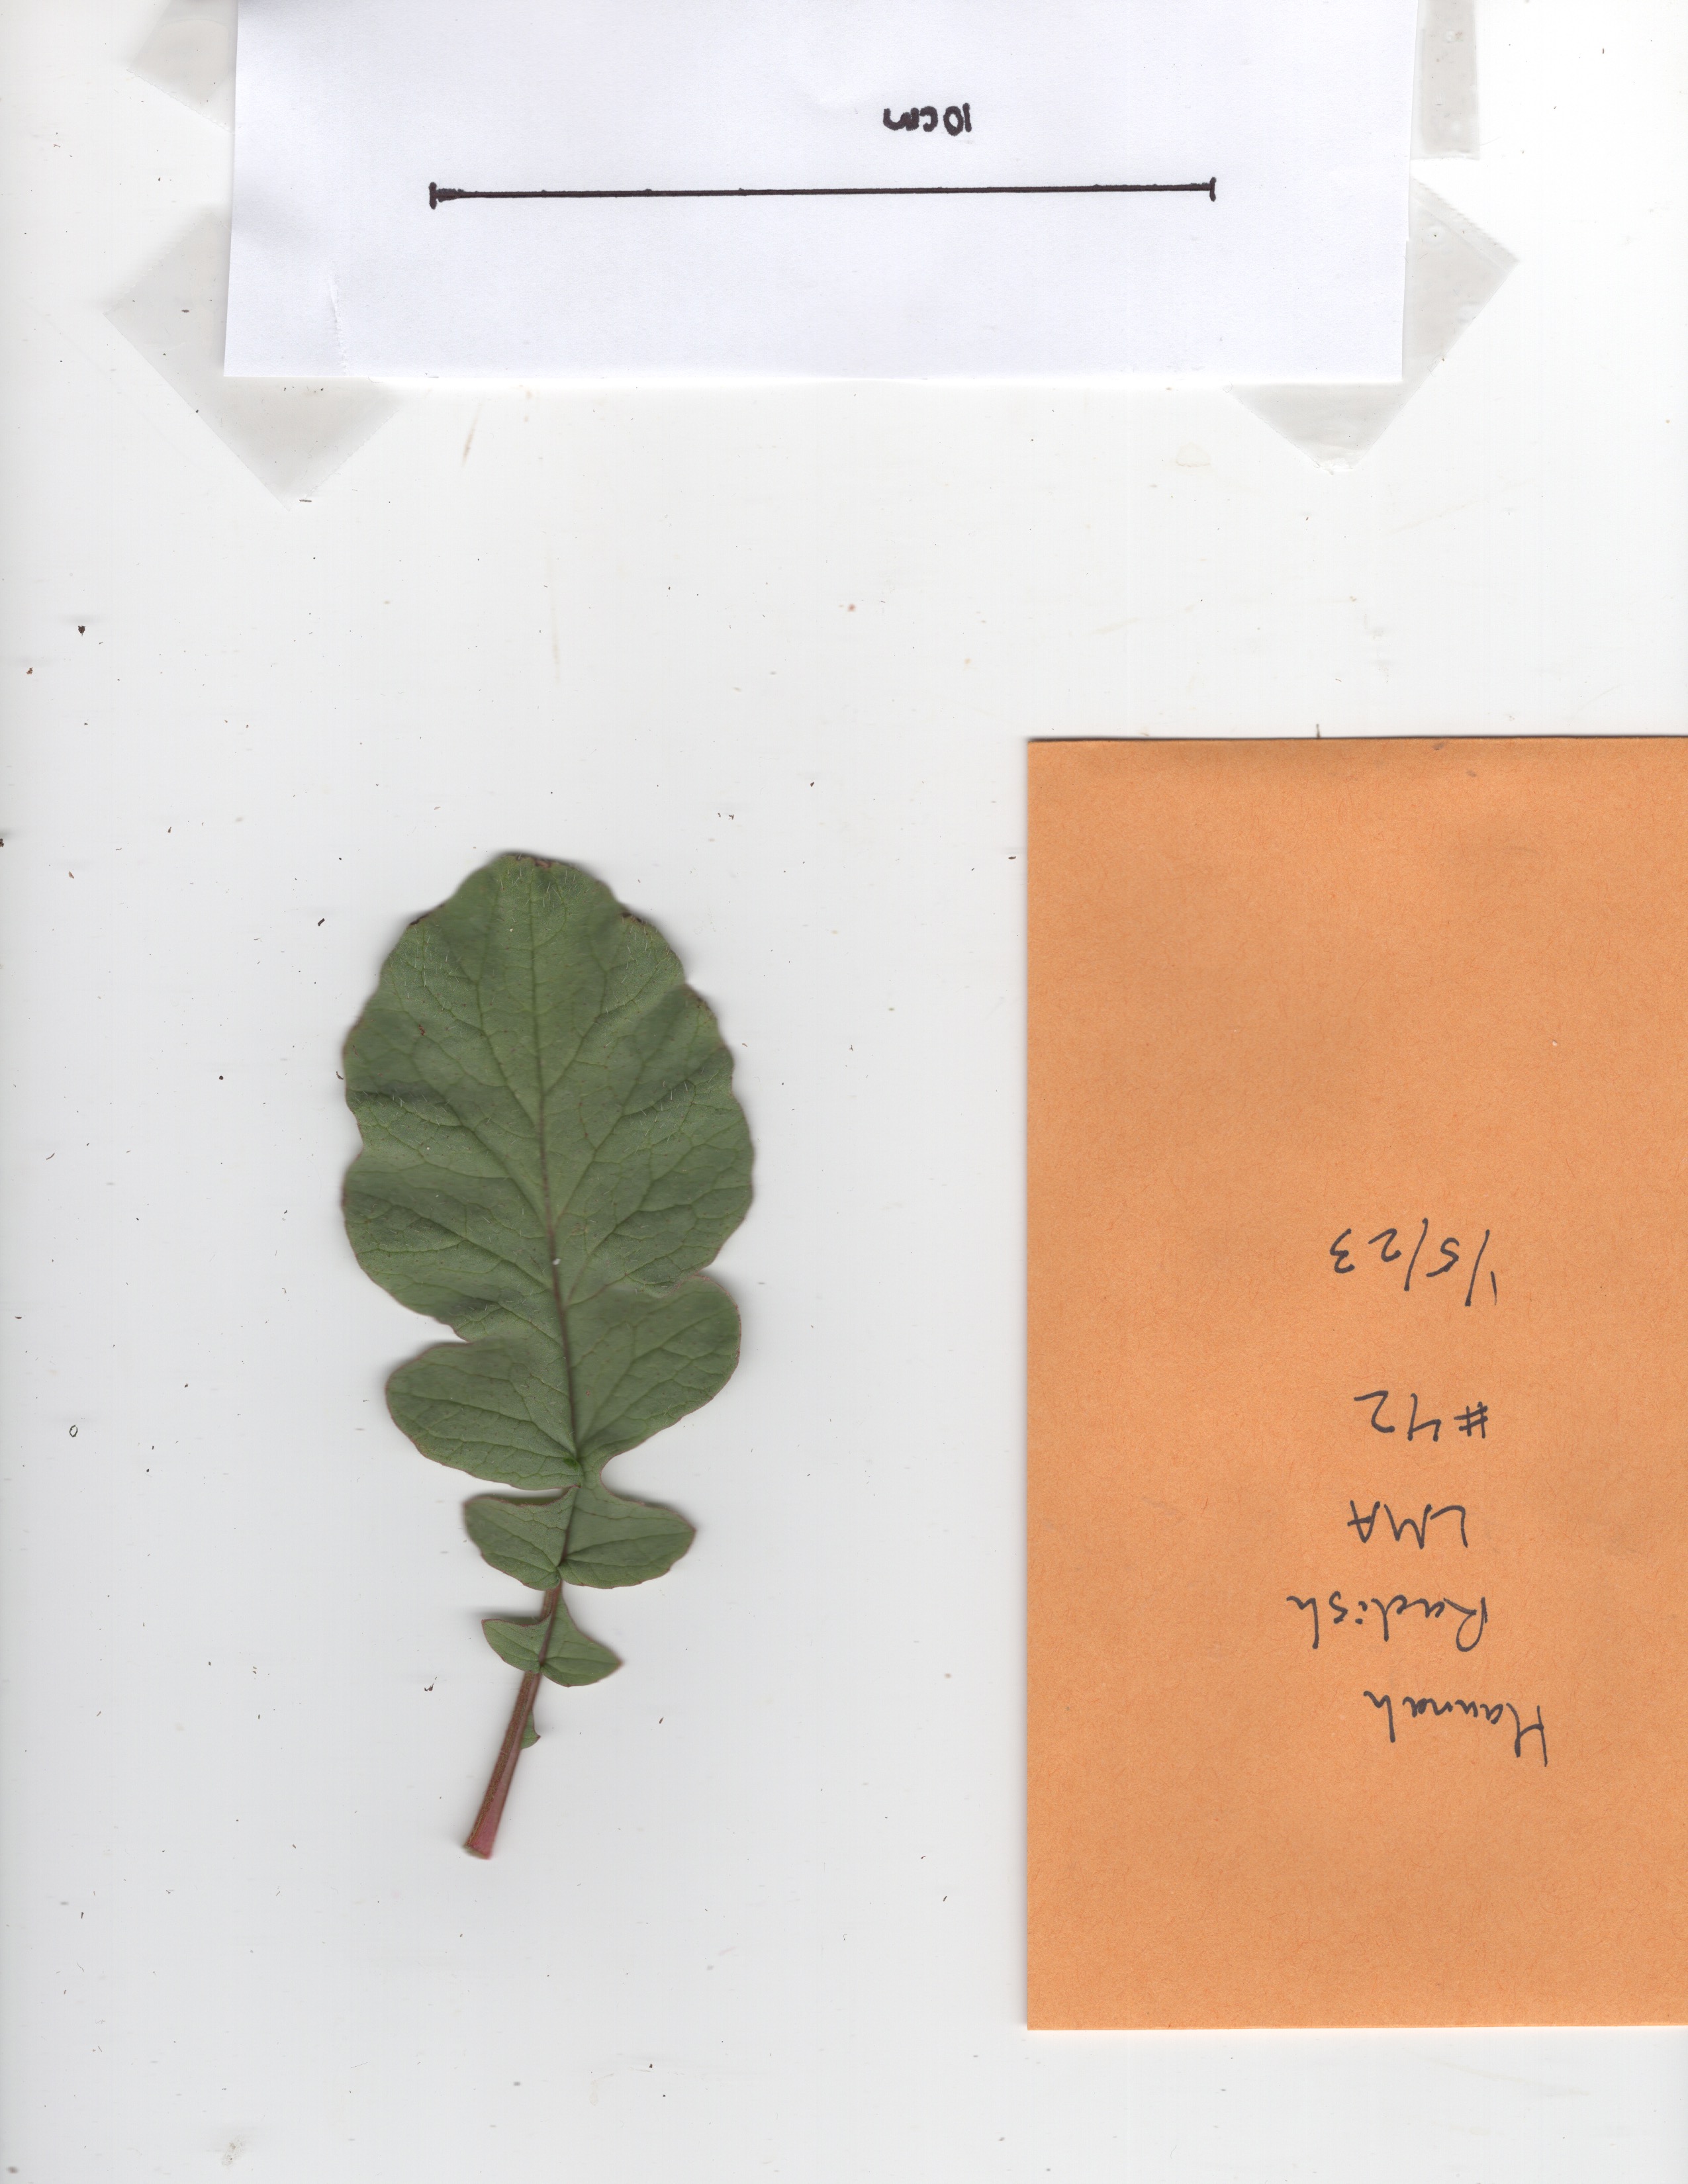 10cm
Hannah
Radish
LMA
#42
1/5/23